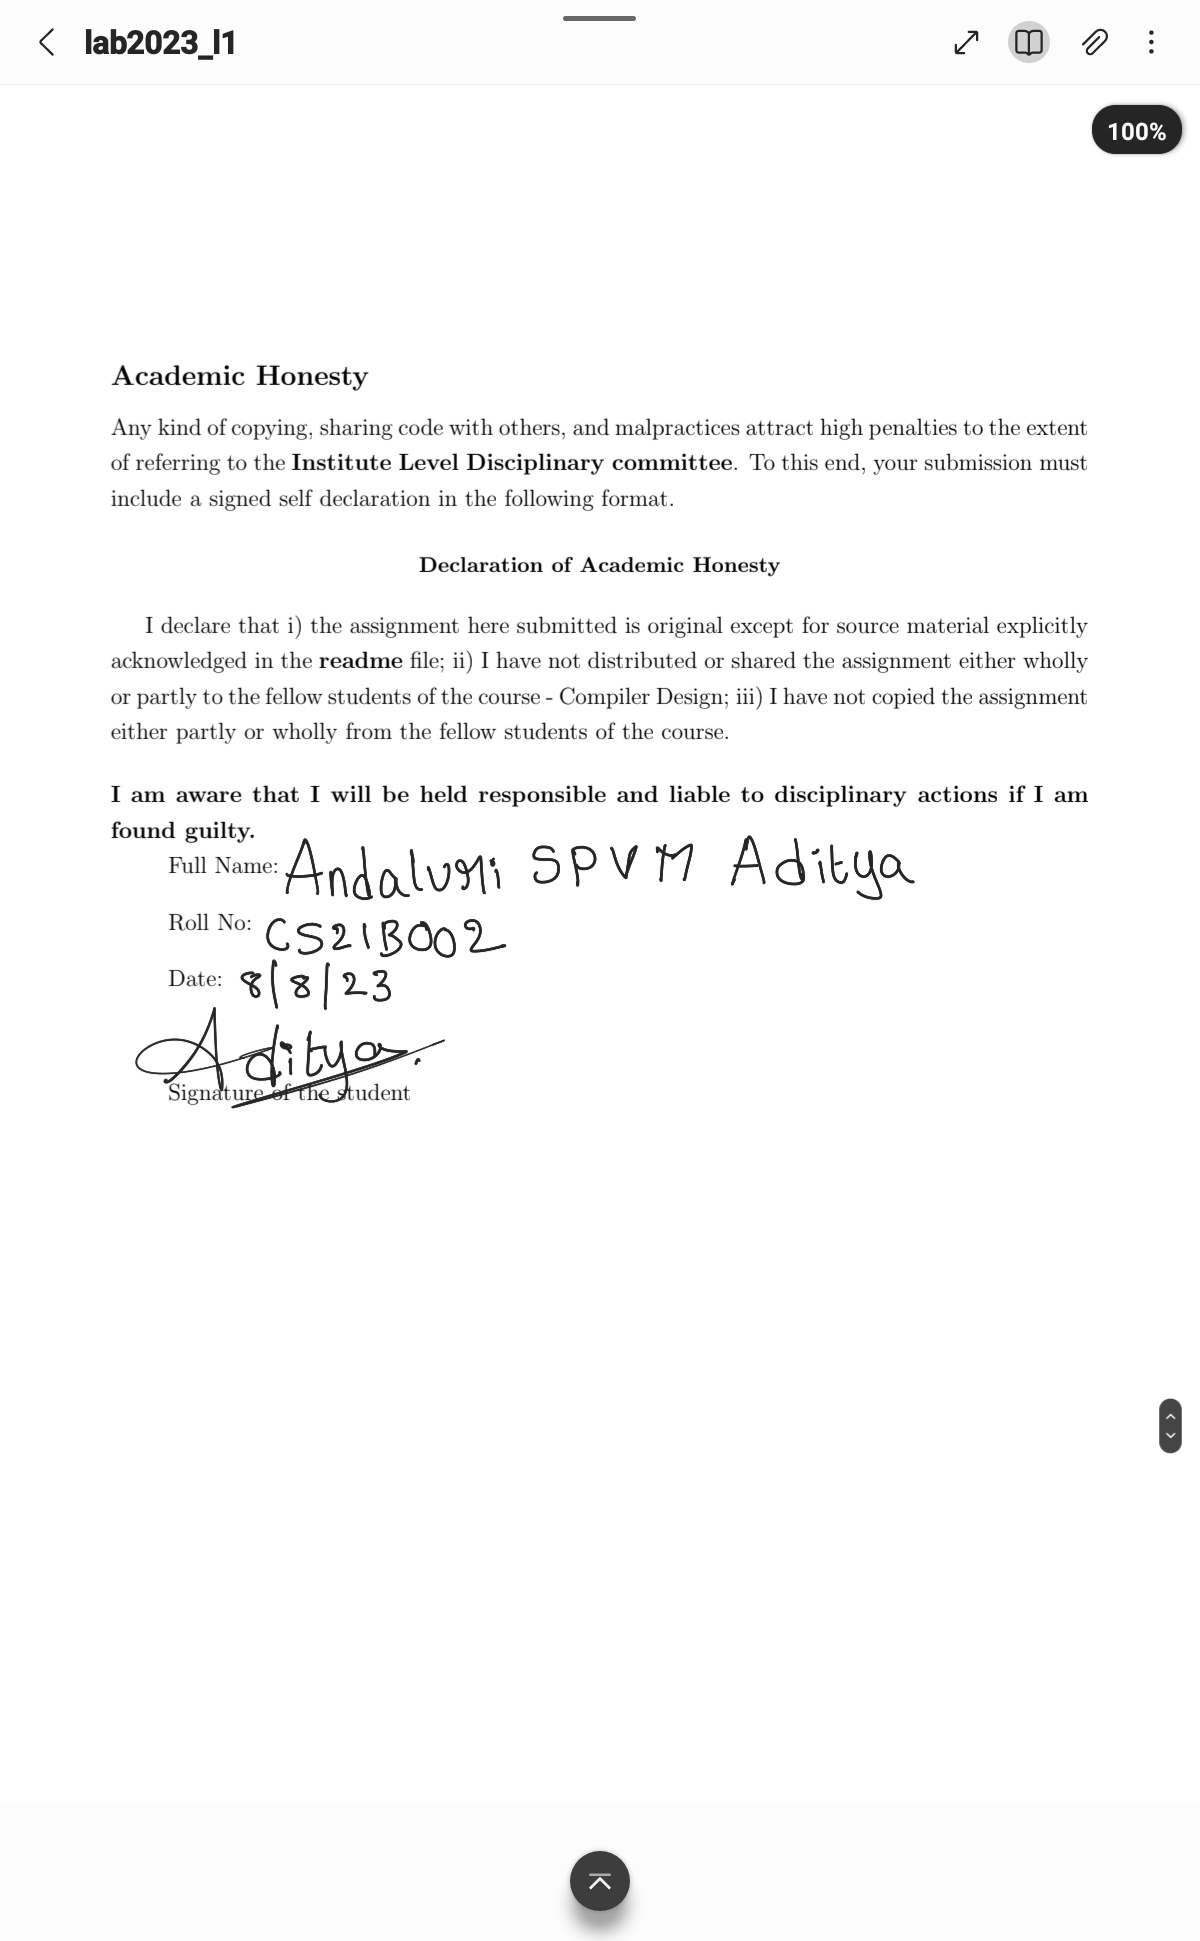 lab2023_l1
100%
Academic Honesty
Any kind of copying, sharing code with others, and malpractices attract high penalties to the extent
of referring to the Institute Level Disciplinary committee. To this end, your submission must
include a signed self declaration in the following format.
Declaration of Academic Honesty
I declare that i) the assignment here submitted is original except for source material explicitly
acknowledged in the readme file; ii) I have not distributed or shared the assignment either wholly
or partly to the fellow students of the course - Compiler Design; iii) I have not copied the assignment
either partly or wholly from the fellow students of the course.
I am aware that I will be held responsible and liable to disciplinary actions if I am
found guilty.
Full Name: Andaluri SPVM Aditya
Roll No: CS21B002
Date: 8/8/23
Aditya.
Signature of the student